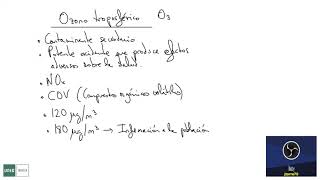 Ozono troposférico O₃
• Contaminante secundario
• Potente oxidante que produce efectos
adversos sobre la salud.
• NOx
• COV (Compuestos orgánicos volátiles)
• 120 μg/m³
• 180 μg/m³ → Información a la población
uned